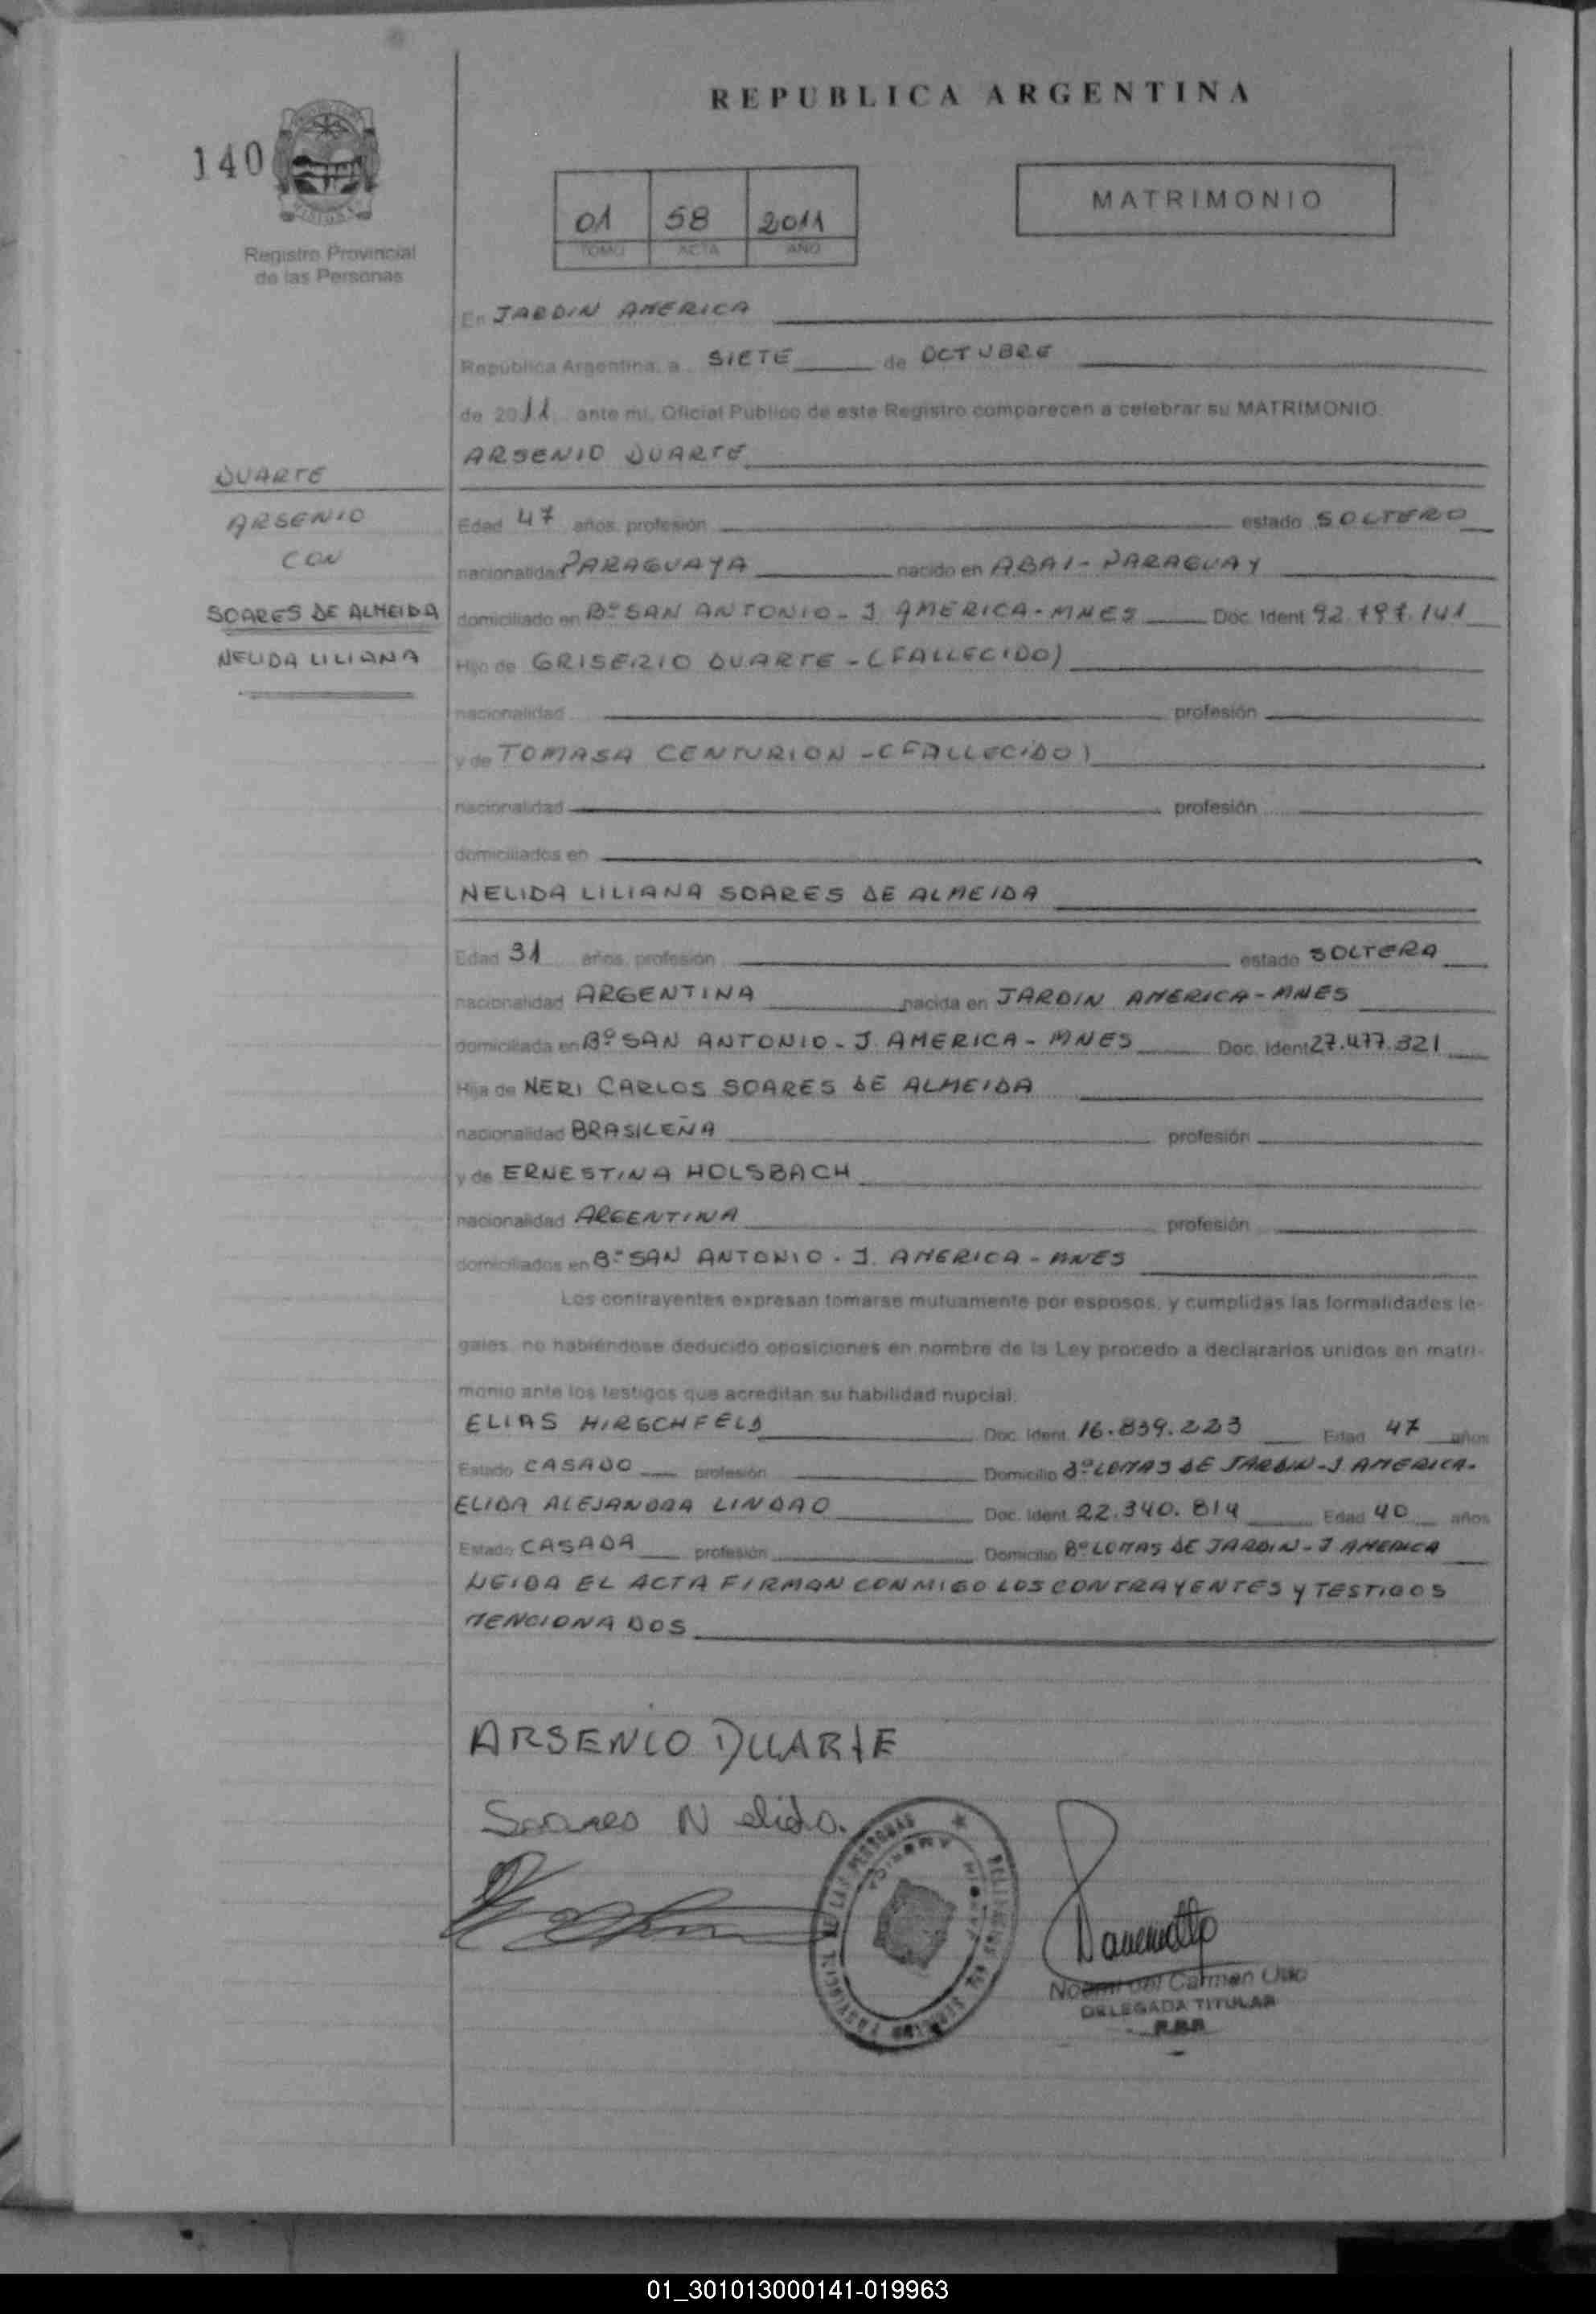 REPUBLICA ARGENTINA
140
Registro Provincial
de las Personas
01 58 2011
TOMO ACTA AÑO
MATRIMONIO
En JARDIN AMERICA
República Argentina, a SIETE de OCTUBRE
de 2011 ante mi, Oficial Público de este Registro comparecen a celebrar su MATRIMONIO
ARSENIO DUARTE
DUARTE
ARSENIO
CON
SOARES DE ALMEIDA
NELIDA LILIANA
Edad 47 años, profesión estado SOLTERO
nacionalidad PARAGUAYA nacido en ABAI - PARAGUAY
domiciliado en Bº SAN ANTONIO - J. AMERICA - MNES Doc. Ident 92.797.141
Hijo de GRISERIO DUARTE - (FALLECIDO)
nacionalidad profesión
y de TOMASA CENTURION - (FALLECIDO)
nacionalidad profesión
domiciliados en
NELIDA LILIANA SOARES DE ALMEIDA
Edad 31 años, profesión estado SOLTERA
nacionalidad ARGENTINA nacida en JARDIN AMERICA - MNES
domiciliada en Bº SAN ANTONIO - J. AMERICA - MNES Doc. Ident 27.477.321
Hija de NERI CARLOS SOARES DE ALMEIDA
nacionalidad BRASILEÑA profesión
y de ERNESTINA HOLSBACH
nacionalidad ARGENTINA profesión
domiciliados en Bº SAN ANTONIO - J. AMERICA - MNES
Los contrayentes expresan tomarse mutuamente por esposos, y cumplidas las formalidades le-
gales, no habiéndose deducido oposiciones en nombre de la Ley procedo a declararlos unidos en matri-
monio ante los testigos que acreditan su habilidad nupcial.
ELIAS HIRSCHFELD Doc. Ident. 16.839.223 Edad 47 años
Estado CASADO profesión Domicilio Bº LOMAS DE JARDIN - J. AMERICA-
ELIDA ALEJANDRA LINDAO Doc. Ident. 22.340.814 Edad 40 años
Estado CASADA profesión Domicilio Bº LOMAS DE JARDIN - J AMERICA
LEIDA EL ACTA FIRMAN CONMIGO LOS CONTRAYENTES y TESTIGOS
MENCIONADOS
ARSENIO DUARTE
Soares Nelida.
Noemi del Carmen
DELEGADA TITULAR
01_301013000141-019963